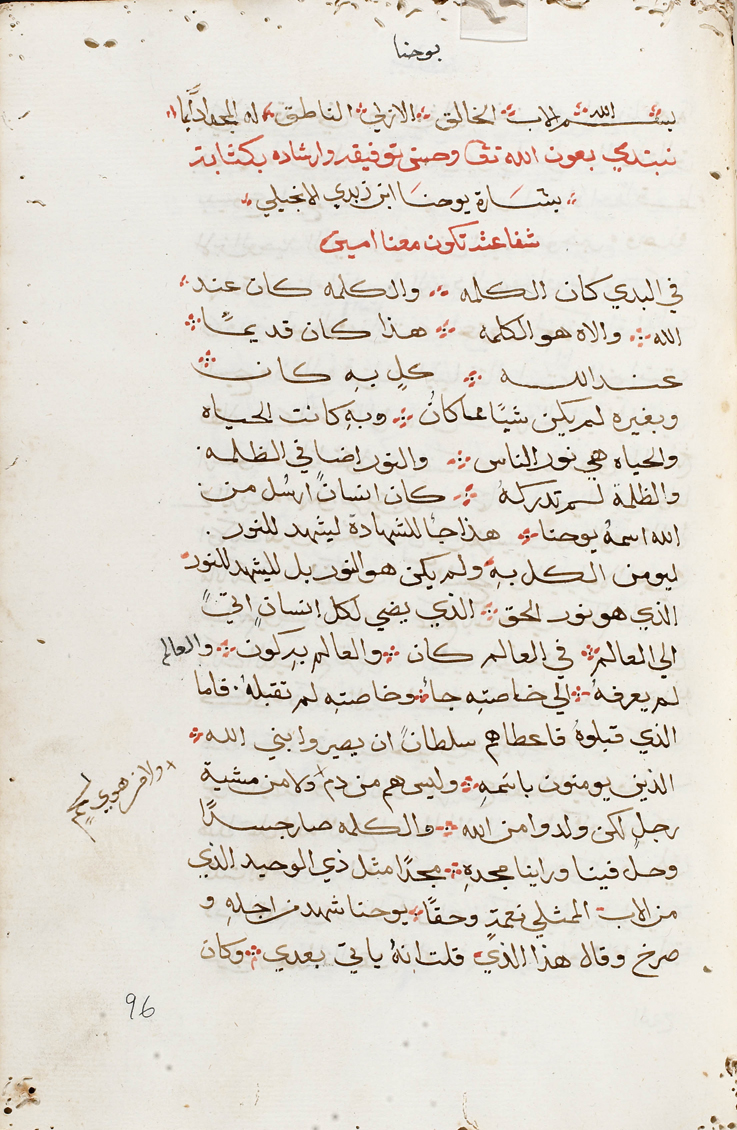 يوحنا
بسم الله الاب الخالق الازلي الناطق له المجد دايما
نبتدي بعون الله تعا وحسن توفيقه وارشاده بكتابة
بشارة يوحنا ابن زبدي الانجيلي
شفاعته تكون معنا امين
في البدي كان الكلمه والكلمه كان عند
الله والاه هو الكلمه هذا كان قديمًا
عند الله كل به كان
وبغيره لم يكن شيًا مما كان وبه كانت الحياه
والحياه هي نور الناس والنور اضا في الظلمه
والظلمة لم تدركهُ كان انسانً ارسُل من
الله اسمهُ يوحنا هذا جا للشهادة ليشهد للنور
ليومن الكل به ولم يكن هو النور بل لليشهد للنور
الذي هو نور الحق الذي يضي لكل انسانٍ اتيً
الي العالم في العالم كان والعالم به كون والعالم
لم يعرفهُ الي خاصته جا وخاصته لم تقبلهُ فاما
الذي قبلوهُ فاعطاهم سلطانً ان يصيروا بني الله
الذين يومنون باسمهِ وليس هم من دم + ولا من مشية
رجلٍ لكن ولدوا من الله والكلمه صار جسدًا
وحل فينا وراينا مجدهِ مجدًا مثل ذي الوحيد الذي
من الاب الممتلي نعمة وحقًا يوحنا شهد من اجلهِ و
صرخ وقال هذا الذي قلت انهُ ياتي بعدي وكان
+ ولا من هوي
96